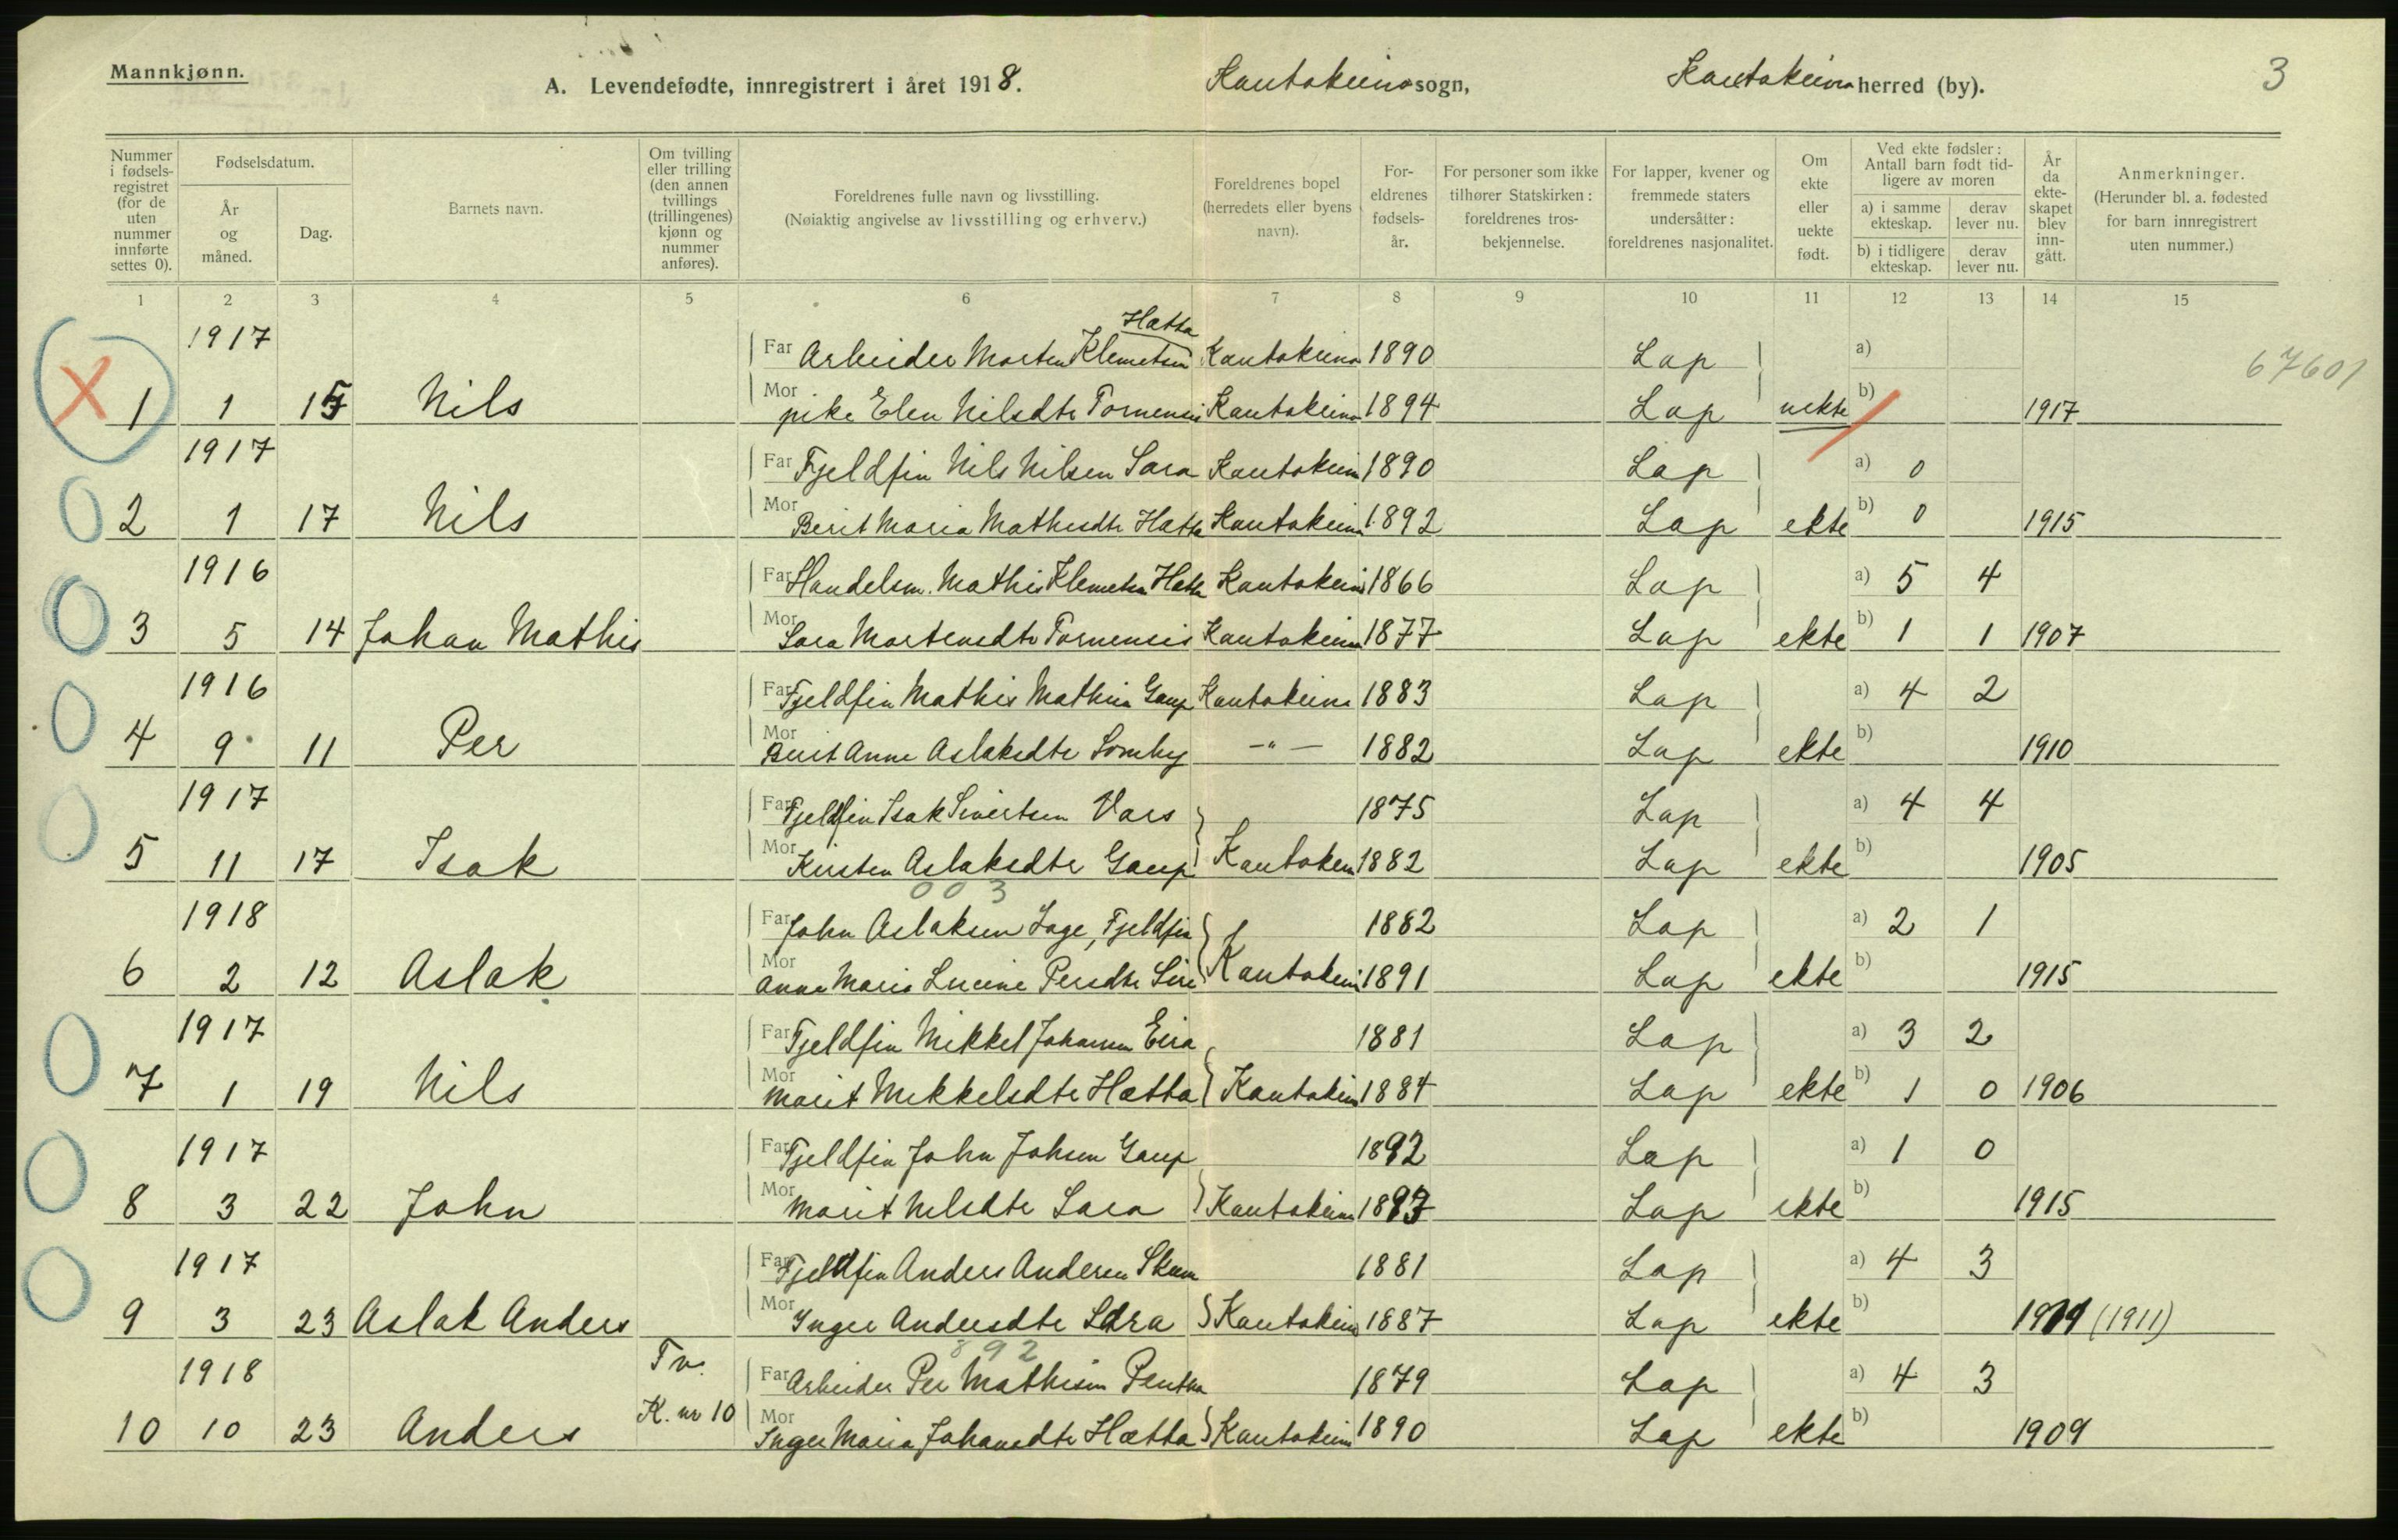 Mannkjønn.
A. Levendefødte, innregistrert i året 1918. Kautokeino sogn, Kautokeino herred (by). 3
Nummer i fødselsregistret (for de uten nummer innførte settes 0).
Fødselsdatum.
År og måned.
Dag.
Barnets navn.
Om tvilling eller trilling (den annen tvillings (trillingenes) kjønn og nummer anføres).
Foreldrenes fulle navn og livsstilling.
(Nøiaktig angivelse av livsstilling og erhverv.)
Foreldrenes bopel (herredets eller byens navn).
Foreldrenes fødselsår.
For personer som ikke tilhører Statskirken: foreldrenes trosbekjennelse.
For lapper, kvener og fremmede staters undersåtter: foreldrenes nasjonalitet.
Om ekte eller uekte født.
Ved ekte fødsler: Antall barn født tidligere av moren
a) i samme ekteskap. derav lever nu.
b) i tidligere ekteskap. derav lever nu.
År da ekteskapet blev inngått.
Anmerkninger.
(Herunder bl. a. fødested for barn innregistrert uten nummer.)
1 2 3 4 5 6 7 8 9 10 11 12 13 14 15
Hætta
1917 Far Arbeider Morten Klemetsen Kautokeino 1890 Lap a) 67601
X 1 1 15 Nils Mor pike Elen Nilsdtr Tornensis Kautokeino 1894 Lap uekte b) 1917
1917 Far Fjeldfin Nils Nilsen Sara Kautokeino 1890 Lap a) 0
2 1 17 Nils Mor Berit Maria Mathisdtr Hætta Kautokeino 1892 Lap ekte b) 0 1915
1916 Far Handelsm. Mathis Klemetsen Hætta Kautokeino 1866 Lap a) 5 4
3 5 14 Johan Mathis Mor Sara Mortensdtr Tornensis Kautokeino 1877 Lap ekte b) 1 1 1907
1916 Far Fjeldfin Mathis Mathisen Gaup Kautokeino 1883 Lap a) 4 2
4 9 11 Per Mor Berit Anne Aslaksdtr Somby -"- 1882 Lap ekte b) 1910
1917 Far Fjeldfin Isak Sivertsen Vars 1875 Lap a) 4 4
5 11 17 Isak Mor Kirsten Aslaksdtr Gaup Kautokein 1882 Lap ekte b) 1905
003
1918 Far John Aslaksen Lage, Fjeldfin 1882 Lap a) 2 1
6 2 12 Aslak Mor Anne Marie Lucine Persdtr Siri Kautokein 1891 Lap ekte b) 1915
1917 Far Fjeldfin Mikkel Johansen Eira 1881 Lap a) 3 2
7 1 19 Nils Mor Marit Mikkelsdtr Hætta Kautokein 1884 Lap ekte b) 1 0 1906
1917 Far Fjeldfin John Johsen Gaup 1892 Lap a) 1 0
8 3 22 John Mor Marit Nilsdtr Sara Kautokeino 1893 Lap ekte b) 1915
1917 Far Fjeldfin Anders Andersen Skum 1881 Lap a) 4 3
9 3 23 Aslak Anders Mor Inger Andersdtr Sara Kautokeino 1887 Lap ekte b) 1919 (1911)
892
1918 Tv. Far Arbeider Per Mathisen Pentha 1879 Lap a) 4 3
10 10 23 Anders K. nr 10 Mor Inger Maria Johansdtr Hætta Kautokeino 1890 Lap ekte b) 1909